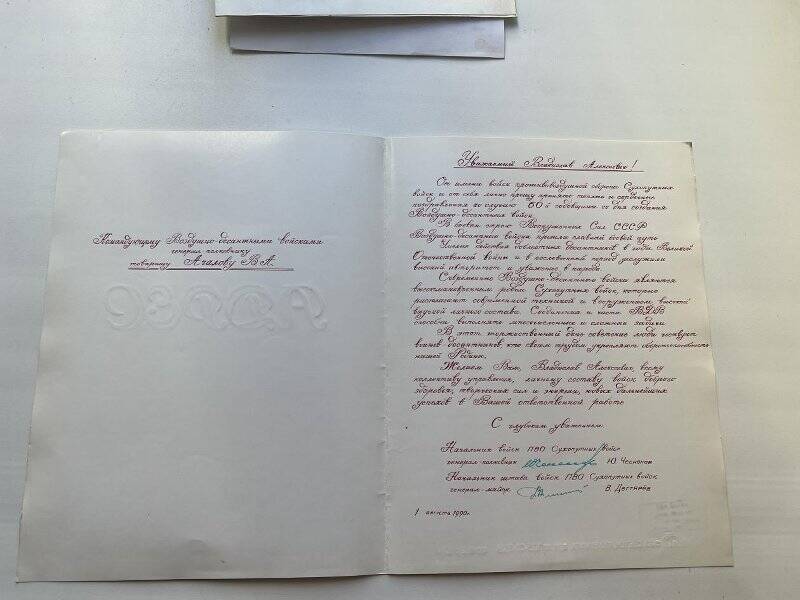 Командующему Воздушно-десантными войсками
генерал-полковнику
товарищу Ачалову В.А.
Уважаемый Владислав Алексеевич!
От имени войск противовоздушной обороны Сухопутных
войск и от себя лично прошу принять теплые и сердечные
поздравления по случаю 60-й годовщины со дня создания
Воздушно-десантных войск.
В боевом строю Вооруженных Сил СССР
Воздушно-десантные войска прошли славный боевой путь
Умелые действия доблестных десантников в годы Великой
Отечественной войны и в послевоенный период заслужили
высокий авторитет и уважение в народе.
Современные Воздушно-десантные войска являются
родом Сухопутных войск, которые
располагают современной техникой и вооружением, высокой
выучкой личного состава. Соединения и части ВДВ
способны выполнять многочисленные и сложные задачи
В этот торжественный день советские люди чествуют
воинов-десантников, кто своим трудом укрепляют обороноспособность
нашей Родины.
Желаем Вам, Владислав Алексеевич, всему
коллективу управления, личному составу войск доброго
здоровья, творческих сил и энергии, новых дальнейших
успехов в Вашей ответственной работе
С глубоким уважением.
Начальник войск ПВО Сухопутных войск
генерал-полковник Ю. Чесноков
Начальник штаба войск ПВО Сухопутных войск
генерал-майор В. Дегтярев
1 августа 1990г.